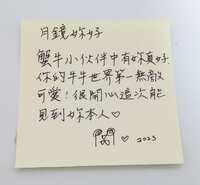 月鏡妳好
蟹牛小伙伴中有妳真好
你的牛牛世界第一無敵
可愛！很開心這次能
見到妳本人♡
♡ 2023